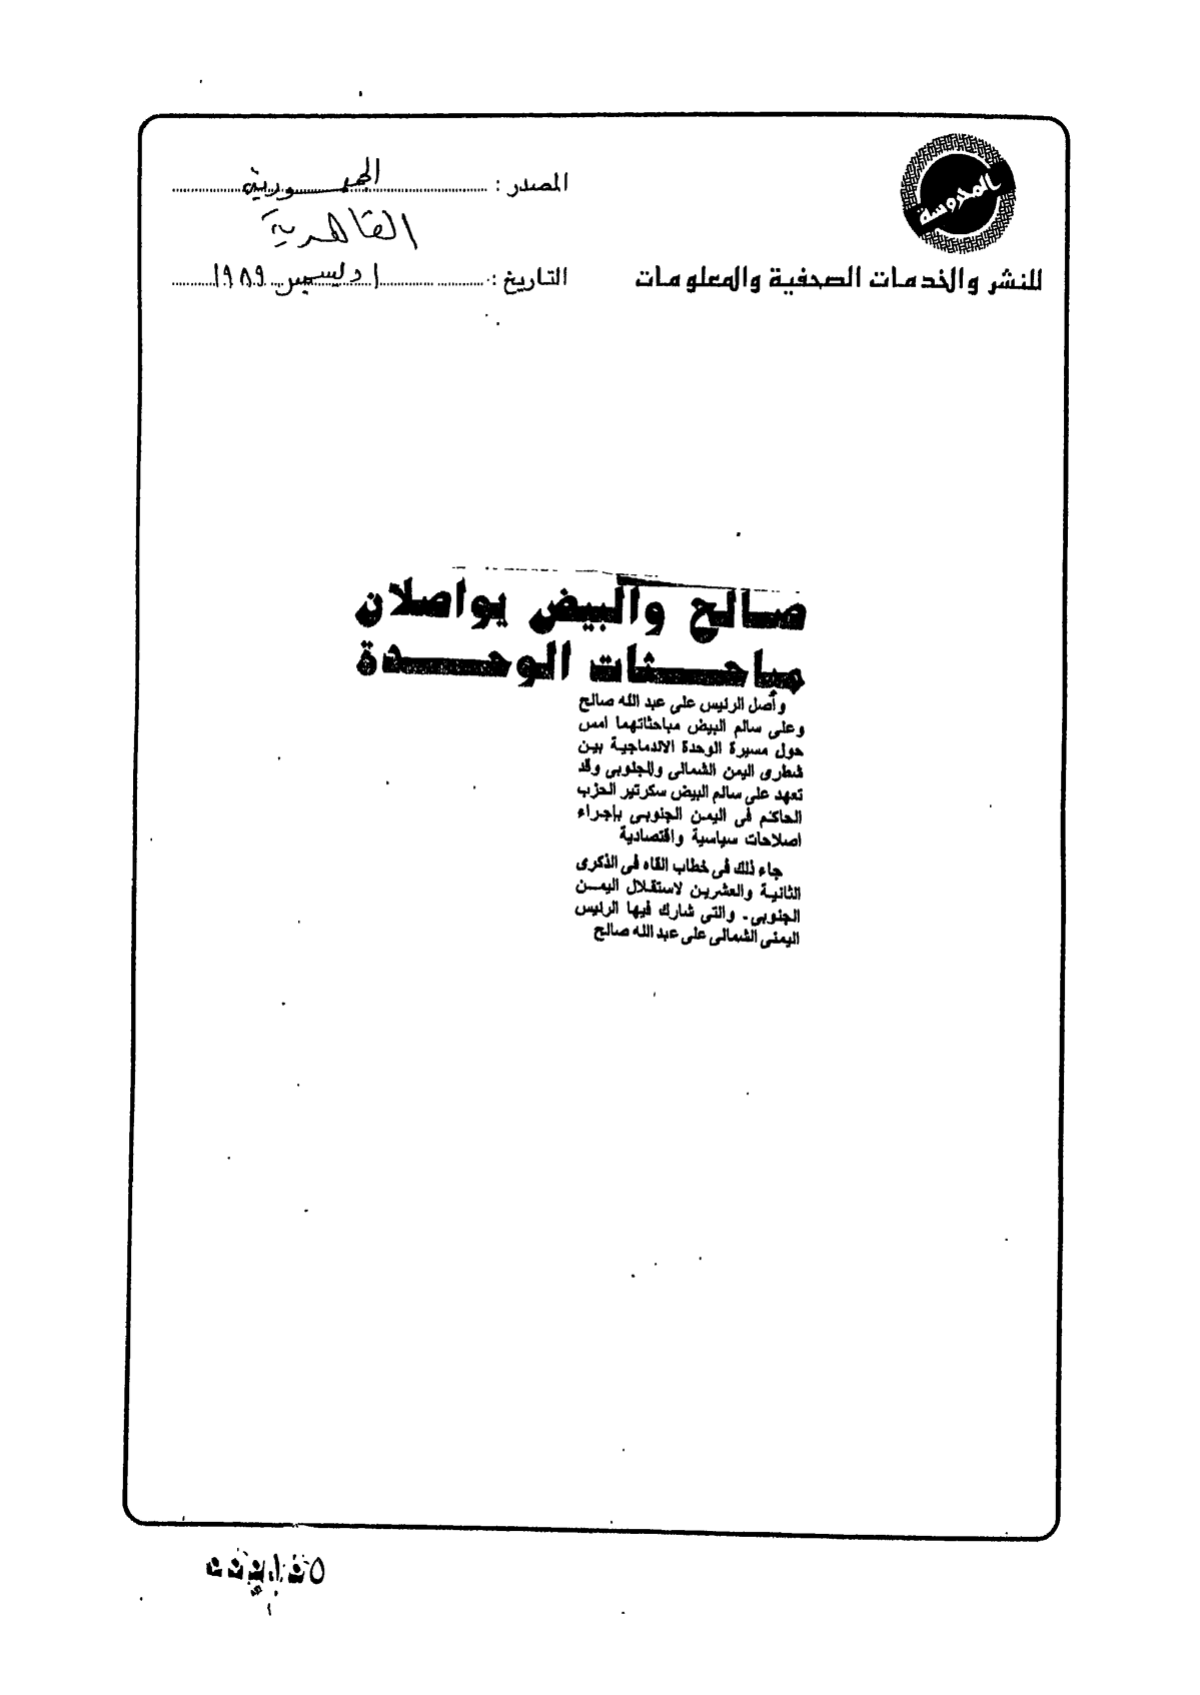 المحروسة
للنشر والخدمات الصحفية والمعلومات
المصدر : الجمهورية
القاهرية
التاريخ : ١ ديسمبر ١٩٨٩
صالح والبيض يواصلان
مباحثات الوحدة
واصل الرئيس على عبد الله صالح
وعلى سالم البيض مباحثاتهما امس
حول مسيرة الوحدة الاندماجية بين
شطرى اليمن الشمالى والجنوبى وقد
تعهد على سالم البيض سكرتير الحزب
الحاكم فى اليمن الجنوبى بإجراء
اصلاحات سياسية واقتصادية
جاء ذلك فى خطاب القاه فى الذكرى
الثانية والعشرين لاستقلال اليمن
الجنوبى - والتى شارك فيها الرئيس
اليمنى الشمالى على عبد الله صالح